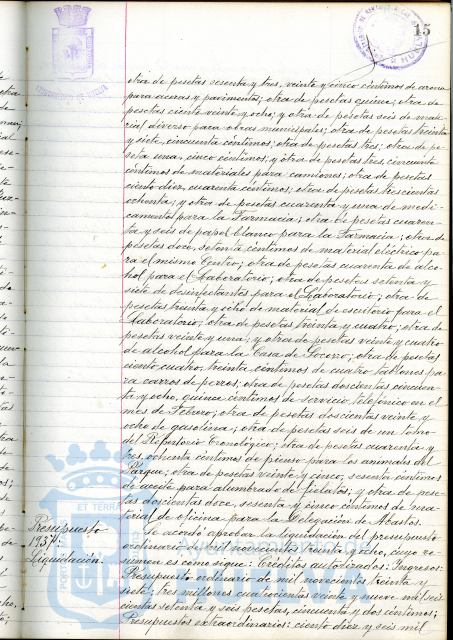 15
otra de pesetas sesenta y tres, veinte y cinco céntimos de arena
para aceras y pavimentos; otra de pesetas quince; otra de
pesetas ciento veinte y ocho; y otra de pesetas seis de mate-
rial diverso para obras municipales; otra de pesetas treinta
y siete, cincuenta céntimos; otra de pesetas tres; otra de pe-
seta una, cinco céntimos; y otra de pesetas tres, cincuenta
céntimos de materiales para camiones; otra de pesetas
ciento diez, cuarenta céntimos; otra de pesetas trescientas
ochenta; y otra de pesetas cuarenta y una de medi-
camentos para la Farmacia; otra de pesetas cuaren-
ta y seis de papel blanco para la Farmacia; otra de
pesetas doce, setenta céntimos de material eléctrico pa-
ra el mismo Centro; otra de pesetas cuarenta de alco-
hol para el Laboratorio; otra de pesetas setenta y
siete de desinfectantes para el Laboratorio; otra de
pesetas treinta y ocho de material de escritorio para el
Laboratorio; otra de pesetas treinta y cuatro; otra de
pesetas veinte y una; y otra de pesetas veinte y cuatro
de alcohol para la Casa de Socorro; otra de pesetas
ciento cuatro, treinta céntimos de cuatro tablones pa-
ra carros de perros; otra de pesetas doscientas cincuen-
ta y ocho, quince céntimos de servicio telefónico en el
mes de Febrero; otra de pesetas doscientas veinte y
ocho de gasolina; otra de pesetas seis de un tomo
del Repertorio Cronológico; otra de pesetas cuarenta y
tres, ochenta céntimos de pienso para los animales del
Parque; otra de pesetas veinte y cinco, sesenta céntimos
de aceite para alumbrado de fielatos; y otra de pese-
tas doscientas doce, sesenta y cinco céntimos de ma-
terial de oficina para la Delegación de Abastos.
Presupuesto
1937:
Liquidación:
Se acordó aprobar la liquidación del presupuesto
ordinario de mil novecientos treinta y ocho, cuyo re-
sumen es como sigue: Créditos autorizados: Ingresos:
Presupuesto ordinario de mil novecientos treinta y
siete; tres millones cuatrocientas veinte y nueve mil seis
cientas setenta y seis pesetas, cincuenta y dos céntimos;
Presupuestos extraordinarios: ciento diez y seis mil